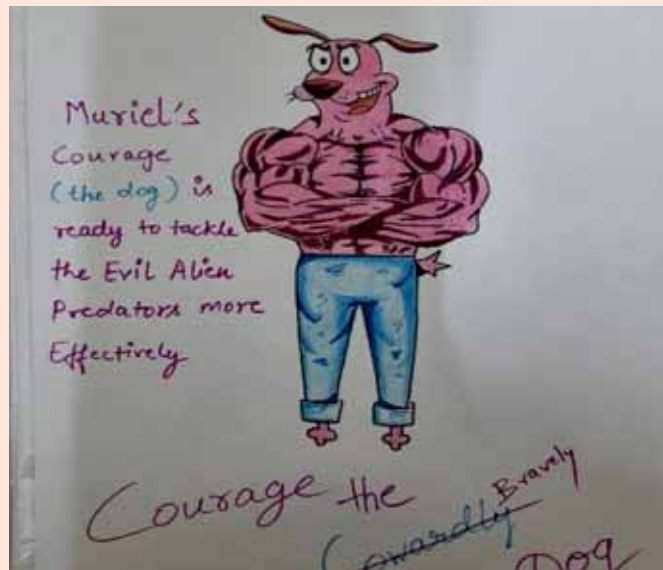 Muriel's
Courage
(the dog) is
ready to tackle
the Evil Alien
Predators more
Effectively
Courage the
Bravely
Cowardly
Dog